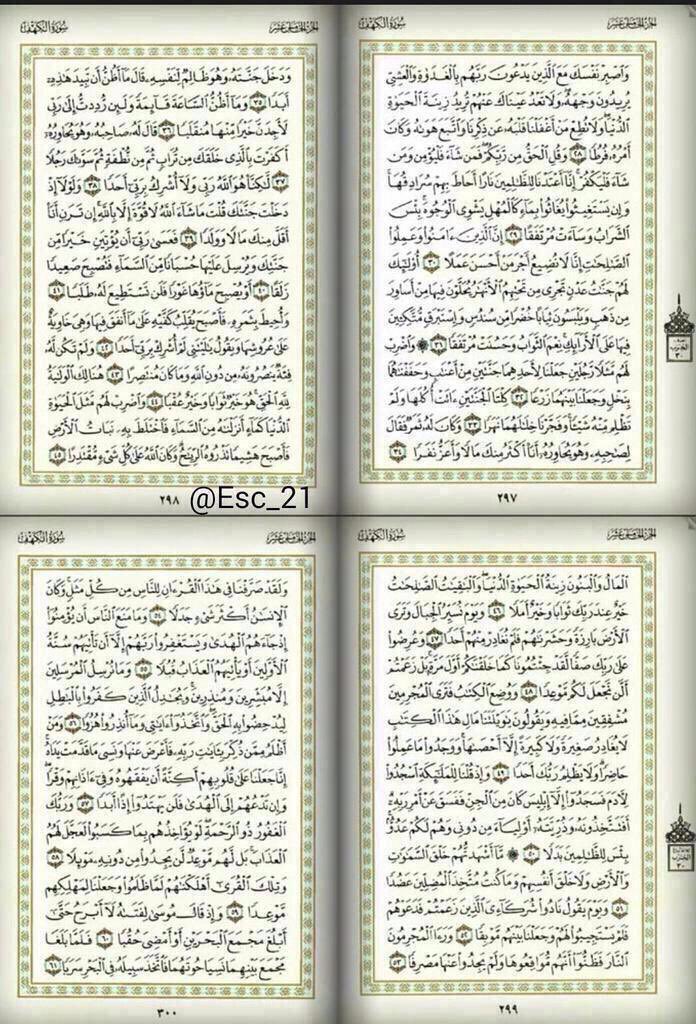 سُورَةُ الكَهْفِ
الجُزْءُ الخَامِسَ عَشَرَ
وَاصْبِرْ نَفْسَكَ مَعَ الَّذِينَ يَدْعُونَ رَبَّهُم بِالْغَدَوٰةِ وَالْعَشِيِّ
يُرِيدُونَ وَجْهَهُۥ وَلَا تَعْدُ عَيْنَاكَ عَنْهُمْ تُرِيدُ زِينَةَ الْحَيَوٰةِ
الدُّنْيَا وَلَا تُطِعْ مَنْ أَغْفَلْنَا قَلْبَهُۥ عَن ذِكْرِنَا وَاتَّبَعَ هَوَىٰهُ وَكَانَ
أَمْرُهُۥ فُرُطًا ٢٨ وَقُلِ الْحَقُّ مِن رَّبِّكُمْ فَمَن شَآءَ فَلْيُؤْمِن وَمَن
شَآءَ فَلْيَكْفُرْ إِنَّآ أَعْتَدْنَا لِلظَّٰلِمِينَ نَارًا أَحَاطَ بِهِمْ سُرَادِقُهَا
وَإِن يَسْتَغِيثُوا۟ يُغَاثُوا۟ بِمَآءٍ كَالْمُهْلِ يَشْوِي الْوُجُوهَ بِئْسَ
الشَّرَابُ وَسَآءَتْ مُرْتَفَقًا ٢٩ إِنَّ الَّذِينَ ءَامَنُوا۟ وَعَمِلُوا۟
الصَّٰلِحَٰتِ إِنَّا لَا نُضِيعُ أَجْرَ مَنْ أَحْسَنَ عَمَلًا ٣٠ أُو۟لَٰٓئِكَ
لَهُمْ جَنَّٰتُ عَدْنٍ تَجْرِي مِن تَحْتِهِمُ الْأَنْهَٰرُ يُحَلَّوْنَ فِيهَا مِنْ أَسَاوِرَ
مِن ذَهَبٍ وَيَلْبَسُونَ ثِيَابًا خُضْرًا مِّن سُندُسٍ وَإِسْتَبْرَقٍ مُّتَّكِـِٔينَ
فِيهَا عَلَى الْأَرَآئِكِ نِعْمَ الثَّوَابُ وَحَسُنَتْ مُرْتَفَقًا ٣١ ۞ وَاضْرِبْ
لَهُم مَّثَلًا رَّجُلَيْنِ جَعَلْنَا لِأَحَدِهِمَا جَنَّتَيْنِ مِنْ أَعْنَٰبٍ وَحَفَفْنَٰهُمَا
بِنَخْلٍ وَجَعَلْنَا بَيْنَهُمَا زَرْعًا ٣٢ كِلْتَا الْجَنَّتَيْنِ ءَاتَتْ أُكُلَهَا وَلَمْ
تَظْلِم مِّنْهُ شَيْـًٔا وَفَجَّرْنَا خِلَٰلَهُمَا نَهَرًا ٣٣ وَكَانَ لَهُۥ ثَمَرٌ فَقَالَ
لِصَٰحِبِهِۦ وَهُوَ يُحَاوِرُهُۥٓ أَنَا۠ أَكْثَرُ مِنكَ مَالًا وَأَعَزُّ نَفَرًا ٣٤
٢٩٧
سُورَةُ الكَهْفِ
الجُزْءُ الخَامِسَ عَشَرَ
وَدَخَلَ جَنَّتَهُۥ وَهُوَ ظَالِمٌ لِّنَفْسِهِۦ قَالَ مَآ أَظُنُّ أَن تَبِيدَ هَٰذِهِۦٓ
أَبَدًا ٣٥ وَمَآ أَظُنُّ السَّاعَةَ قَآئِمَةً وَلَئِن رُّدِدتُّ إِلَىٰ رَبِّي
لَأَجِدَنَّ خَيْرًا مِّنْهَا مُنقَلَبًا ٣٦ قَالَ لَهُۥ صَاحِبُهُۥ وَهُوَ يُحَاوِرُهُۥٓ
أَكَفَرْتَ بِالَّذِي خَلَقَكَ مِن تُرَابٍ ثُمَّ مِن نُّطْفَةٍ ثُمَّ سَوَّىٰكَ رَجُلًا
٣٧ لَّٰكِنَّا۠ هُوَ اللَّهُ رَبِّي وَلَآ أُشْرِكُ بِرَبِّيٓ أَحَدًا ٣٨ وَلَوْلَآ إِذْ
دَخَلْتَ جَنَّتَكَ قُلْتَ مَا شَآءَ اللَّهُ لَا قُوَّةَ إِلَّا بِاللَّهِ إِن تَرَنِ أَنَا۠
أَقَلَّ مِنكَ مَالًا وَوَلَدًا ٣٩ فَعَسَىٰ رَبِّيٓ أَن يُؤْتِيَنِ خَيْرًا مِّن
جَنَّتِكَ وَيُرْسِلَ عَلَيْهَا حُسْبَانًا مِّنَ السَّمَآءِ فَتُصْبِحَ صَعِيدًا
زَلَقًا ٤٠ أَوْ يُصْبِحَ مَآؤُهَا غَوْرًا فَلَن تَسْتَطِيعَ لَهُۥ طَلَبًا ٤١
وَأُحِيطَ بِثَمَرِهِۦ فَأَصْبَحَ يُقَلِّبُ كَفَّيْهِ عَلَىٰ مَآ أَنفَقَ فِيهَا وَهِيَ خَاوِيَةٌ
عَلَىٰ عُرُوشِهَا وَيَقُولُ يَٰلَيْتَنِي لَمْ أُشْرِكْ بِرَبِّيٓ أَحَدًا ٤٢ وَلَمْ تَكُن لَّهُۥ
فِئَةٌ يَنصُرُونَهُۥ مِن دُونِ اللَّهِ وَمَا كَانَ مُنتَصِرًا ٤٣ هُنَالِكَ الْوَلَٰيَةُ
لِلَّهِ الْحَقِّ هُوَ خَيْرٌ ثَوَابًا وَخَيْرٌ عُقْبًا ٤٤ وَاضْرِبْ لَهُم مَّثَلَ الْحَيَوٰةِ
الدُّنْيَا كَمَآءٍ أَنزَلْنَٰهُ مِنَ السَّمَآءِ فَاخْتَلَطَ بِهِۦ نَبَاتُ الْأَرْضِ
فَأَصْبَحَ هَشِيمًا تَذْرُوهُ الرِّيَٰحُ وَكَانَ اللَّهُ عَلَىٰ كُلِّ شَيْءٍ مُّقْتَدِرًا ٤٥
٢٩٨
@Esc_21
سُورَةُ الكَهْفِ
الجُزْءُ الخَامِسَ عَشَرَ
الْمَالُ وَالْبَنُونَ زِينَةُ الْحَيَوٰةِ الدُّنْيَا وَالْبَٰقِيَٰتُ الصَّٰلِحَٰتُ
خَيْرٌ عِندَ رَبِّكَ ثَوَابًا وَخَيْرٌ أَمَلًا ٤٦ وَيَوْمَ نُسَيِّرُ الْجِبَالَ وَتَرَى
الْأَرْضَ بَارِزَةً وَحَشَرْنَٰهُمْ فَلَمْ نُغَادِرْ مِنْهُمْ أَحَدًا ٤٧ وَعُرِضُوا۟
عَلَىٰ رَبِّكَ صَفًّا لَّقَدْ جِئْتُمُونَا كَمَا خَلَقْنَٰكُمْ أَوَّلَ مَرَّةٍۭ بَلْ زَعَمْتُمْ
أَلَّن نَّجْعَلَ لَكُم مَّوْعِدًا ٤٨ وَوُضِعَ الْكِتَٰبُ فَتَرَى الْمُجْرِمِينَ
مُشْفِقِينَ مِمَّا فِيهِ وَيَقُولُونَ يَٰوَيْلَتَنَا مَالِ هَٰذَا الْكِتَٰبِ
لَا يُغَادِرُ صَغِيرَةً وَلَا كَبِيرَةً إِلَّآ أَحْصَىٰهَا وَوَجَدُوا۟ مَا عَمِلُوا۟
حَاضِرًا وَلَا يَظْلِمُ رَبُّكَ أَحَدًا ٤٩ وَإِذْ قُلْنَا لِلْمَلَٰٓئِكَةِ اسْجُدُوا۟
لِءَادَمَ فَسَجَدُوٓا۟ إِلَّآ إِبْلِيسَ كَانَ مِنَ الْجِنِّ فَفَسَقَ عَنْ أَمْرِ رَبِّهِۦٓ
أَفَتَتَّخِذُونَهُۥ وَذُرِّيَّتَهُۥٓ أَوْلِيَآءَ مِن دُونِي وَهُمْ لَكُمْ عَدُوٌّۢ
بِئْسَ لِلظَّٰلِمِينَ بَدَلًا ٥٠ ۞ مَّآ أَشْهَدتُّهُمْ خَلْقَ السَّمَٰوَٰتِ
وَالْأَرْضِ وَلَا خَلْقَ أَنفُسِهِمْ وَمَا كُنتُ مُتَّخِذَ الْمُضِلِّينَ عَضُدًا
٥١ وَيَوْمَ يَقُولُ نَادُوا۟ شُرَكَآءِيَ الَّذِينَ زَعَمْتُمْ فَدَعَوْهُمْ
فَلَمْ يَسْتَجِيبُوا۟ لَهُمْ وَجَعَلْنَا بَيْنَهُم مَّوْبِقًا ٥٢ وَرَءَا الْمُجْرِمُونَ
النَّارَ فَظَنُّوٓا۟ أَنَّهُم مُّوَاقِعُوهَا وَلَمْ يَجِدُوا۟ عَنْهَا مَصْرِفًا ٥٣
٢٩٩
سُورَةُ الكَهْفِ
الجُزْءُ الخَامِسَ عَشَرَ
وَلَقَدْ صَرَّفْنَا فِي هَٰذَا الْقُرْءَانِ لِلنَّاسِ مِن كُلِّ مَثَلٍ وَكَانَ
الْإِنسَٰنُ أَكْثَرَ شَيْءٍ جَدَلًا ٥٤ وَمَا مَنَعَ النَّاسَ أَن يُؤْمِنُوٓا۟
إِذْ جَآءَهُمُ الْهُدَىٰ وَيَسْتَغْفِرُوا۟ رَبَّهُمْ إِلَّآ أَن تَأْتِيَهُمْ سُنَّةُ
الْأَوَّلِينَ أَوْ يَأْتِيَهُمُ الْعَذَابُ قُبُلًا ٥٥ وَمَا نُرْسِلُ الْمُرْسَلِينَ
إِلَّا مُبَشِّرِينَ وَمُنذِرِينَ وَيُجَٰدِلُ الَّذِينَ كَفَرُوا۟ بِالْبَٰطِلِ
لِيُدْحِضُوا۟ بِهِ الْحَقَّ وَاتَّخَذُوٓا۟ ءَايَٰتِي وَمَآ أُنذِرُوا۟ هُزُوًا ٥٦ وَمَنْ
أَظْلَمُ مِمَّن ذُكِّرَ بِـَٔايَٰتِ رَبِّهِۦ فَأَعْرَضَ عَنْهَا وَنَسِيَ مَا قَدَّمَتْ يَدَاهُ
إِنَّا جَعَلْنَا عَلَىٰ قُلُوبِهِمْ أَكِنَّةً أَن يَفْقَهُوهُ وَفِيٓ ءَاذَانِهِمْ وَقْرًا
وَإِن تَدْعُهُمْ إِلَى الْهُدَىٰ فَلَن يَهْتَدُوٓا۟ إِذًا أَبَدًا ٥٧ وَرَبُّكَ
الْغَفُورُ ذُو الرَّحْمَةِ لَوْ يُؤَاخِذُهُم بِمَا كَسَبُوا۟ لَعَجَّلَ لَهُمُ
الْعَذَابَ بَل لَّهُم مَّوْعِدٌ لَّن يَجِدُوا۟ مِن دُونِهِۦ مَوْئِلًا ٥٨
وَتِلْكَ الْقُرَىٰٓ أَهْلَكْنَٰهُمْ لَمَّا ظَلَمُوا۟ وَجَعَلْنَا لِمَهْلِكِهِم
مَّوْعِدًا ٥٩ وَإِذْ قَالَ مُوسَىٰ لِفَتَىٰهُ لَآ أَبْرَحُ حَتَّىٰٓ
أَبْلُغَ مَجْمَعَ الْبَحْرَيْنِ أَوْ أَمْضِيَ حُقُبًا ٦٠ فَلَمَّا بَلَغَا
مَجْمَعَ بَيْنِهِمَا نَسِيَا حُوتَهُمَا فَاتَّخَذَ سَبِيلَهُۥ فِي الْبَحْرِ سَرَبًا ٦١
٣٠٠